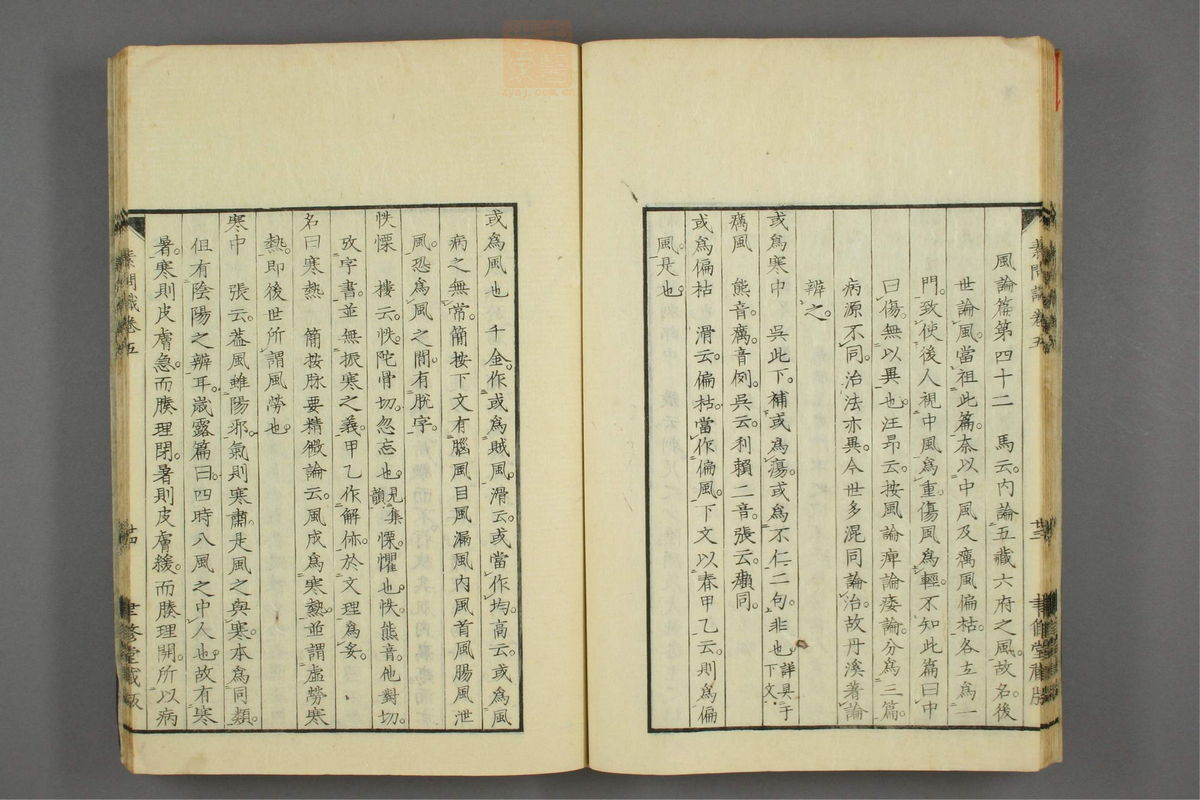 素問識卷五
卅三
聿修堂藏版
風論篇第四十二 馬云內論五藏六府之風。故名。後
世論風。當祖此篇。奈以中風及癘風偏枯。各立爲一
門。致使後人視中風爲重。傷風爲輕。不知此篇曰中
曰傷。無以異也。汪昂云。按風論痺論痿論。分爲三篇。
病源不同。治法亦異。今世多混同論治。故丹溪著論
辨之。
或爲寒中 吳此下。補或爲瘍。或爲不仁二句。非也。詳具于下文。
癘風 熊音。癘音例。吳云。利賴二音。張云。癩同。
或爲偏枯 滑云。偏枯。當作偏風。下文以春甲乙云。則爲偏
風。是也。
或爲風也 千金。作或爲賊風。滑云。或當作均。高云。或爲風
病之無常。簡按下文有腦風目風漏風內風首風腸風泄
風。恐爲風之間。有脫字。
怢慄 樓云。怢。陀骨切。忽忘也。見集韻。慄。懼也。怢。熊音。他對切。
攷字書。並無振寒之義。甲乙作解㑊。於文理爲妥。
名曰寒熱 簡按脉要精微論云。風成爲寒熱。並謂虛勞寒
熱。即後世所謂風勞也。
寒中 張云。蓋風雖陽邪。氣則寒肅。是風之與寒。本爲同類。
但有陰陽之辨耳。歲露篇曰。四時八風之中人也。故有寒
暑。寒則皮膚急。而腠理閉。暑則皮膚緩。而腠理開。所以病
素問識卷五
卅四
聿修堂藏版